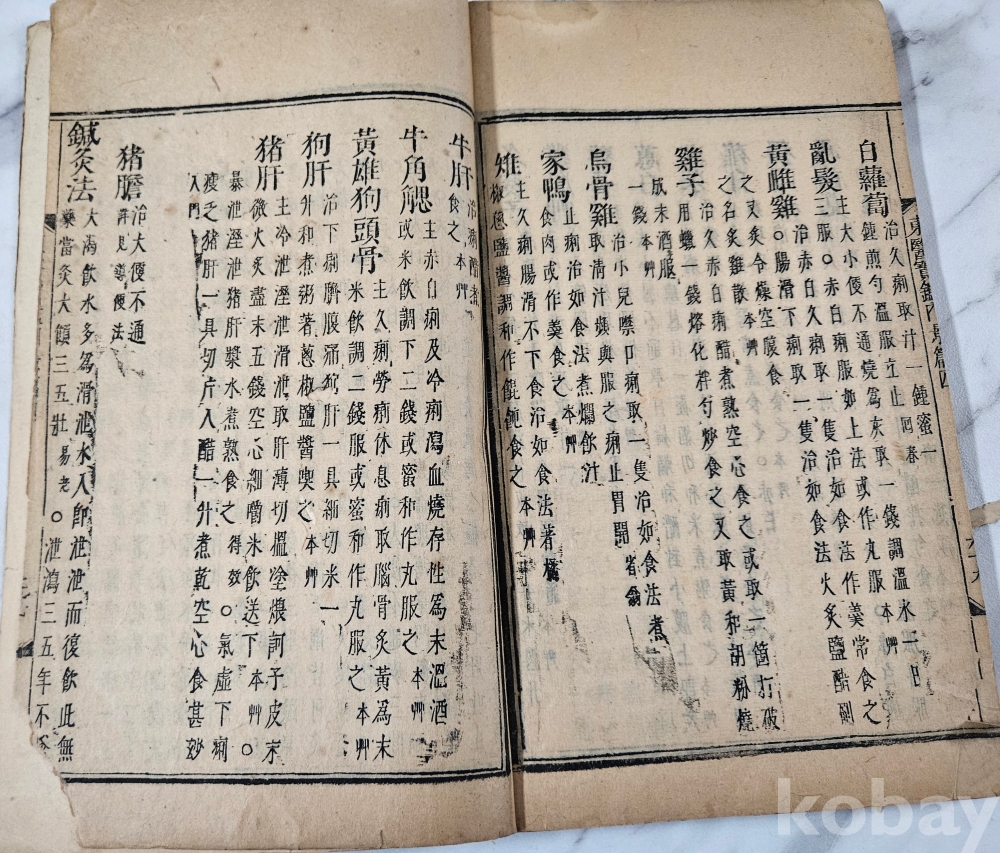 白蘿蔔 治久痢取汁一鍾蜜一
鍾煎勻溫服立止 回春
亂髮 主大小便不通燒爲灰取一錢調溫水二日
三服○赤白痢服如上法或作丸服 本艸
黃雌雞 治赤白久痢取一隻治如食法作羹常食之
○腸滑下痢取一隻治如食法火炙鹽酷
之又炙令燥空腹食
之名炙雞散 本艸
雞子 治久赤白痢醋煮熟空心食之或取一箇打破
用蠟一錢熔化拌勻炒食之又取黃和胡粉燒
成末酒服
一錢 本艸
烏骨雞 治小兒噤口痢取一隻治如食法煮
取淸汁頻與服之痢止胃開
家鴨 止痢治如食法煮爛飮汁
食肉或作羹食之 本艸
雉 主久痢腸滑不下食治如食法著橘
椒葱鹽醬調和作餛飩食之 本艸
牛肝 治痢醋煮
食之 本艸
牛角䚡 主赤白痢及冷痢瀉血燒存性爲末溫酒
或米飮調下二錢或蜜和作丸服之 本艸
黃雄狗頭骨 主久痢勞痢休息痢取腦骨炙黃爲末
米飮調二錢服或蜜和作丸服之 本艸
狗肝 治下痢腹痛狗肝一具細切米一
升和煮粥著葱椒鹽醬喫之 本艸
猪肝 主冷泄溼泄滑泄取肝薄切搵塗煨訶子皮末
微火炙盡末五錢空心細嚼米飮送下 本艸 ○
暴泄溼泄猪肝漿水煮熟食之 得效 ○氣虛下痢
瘦乏猪肝一具切片入醋一升煮乾空心食甚妙
入門
猪膽 治大便不通
詳見導便法
鍼灸法 大渴飮水多爲滑泄水入卽泄泄而復飮此無
藥當灸大顀三五壯 易老 ○泄瀉三五年不